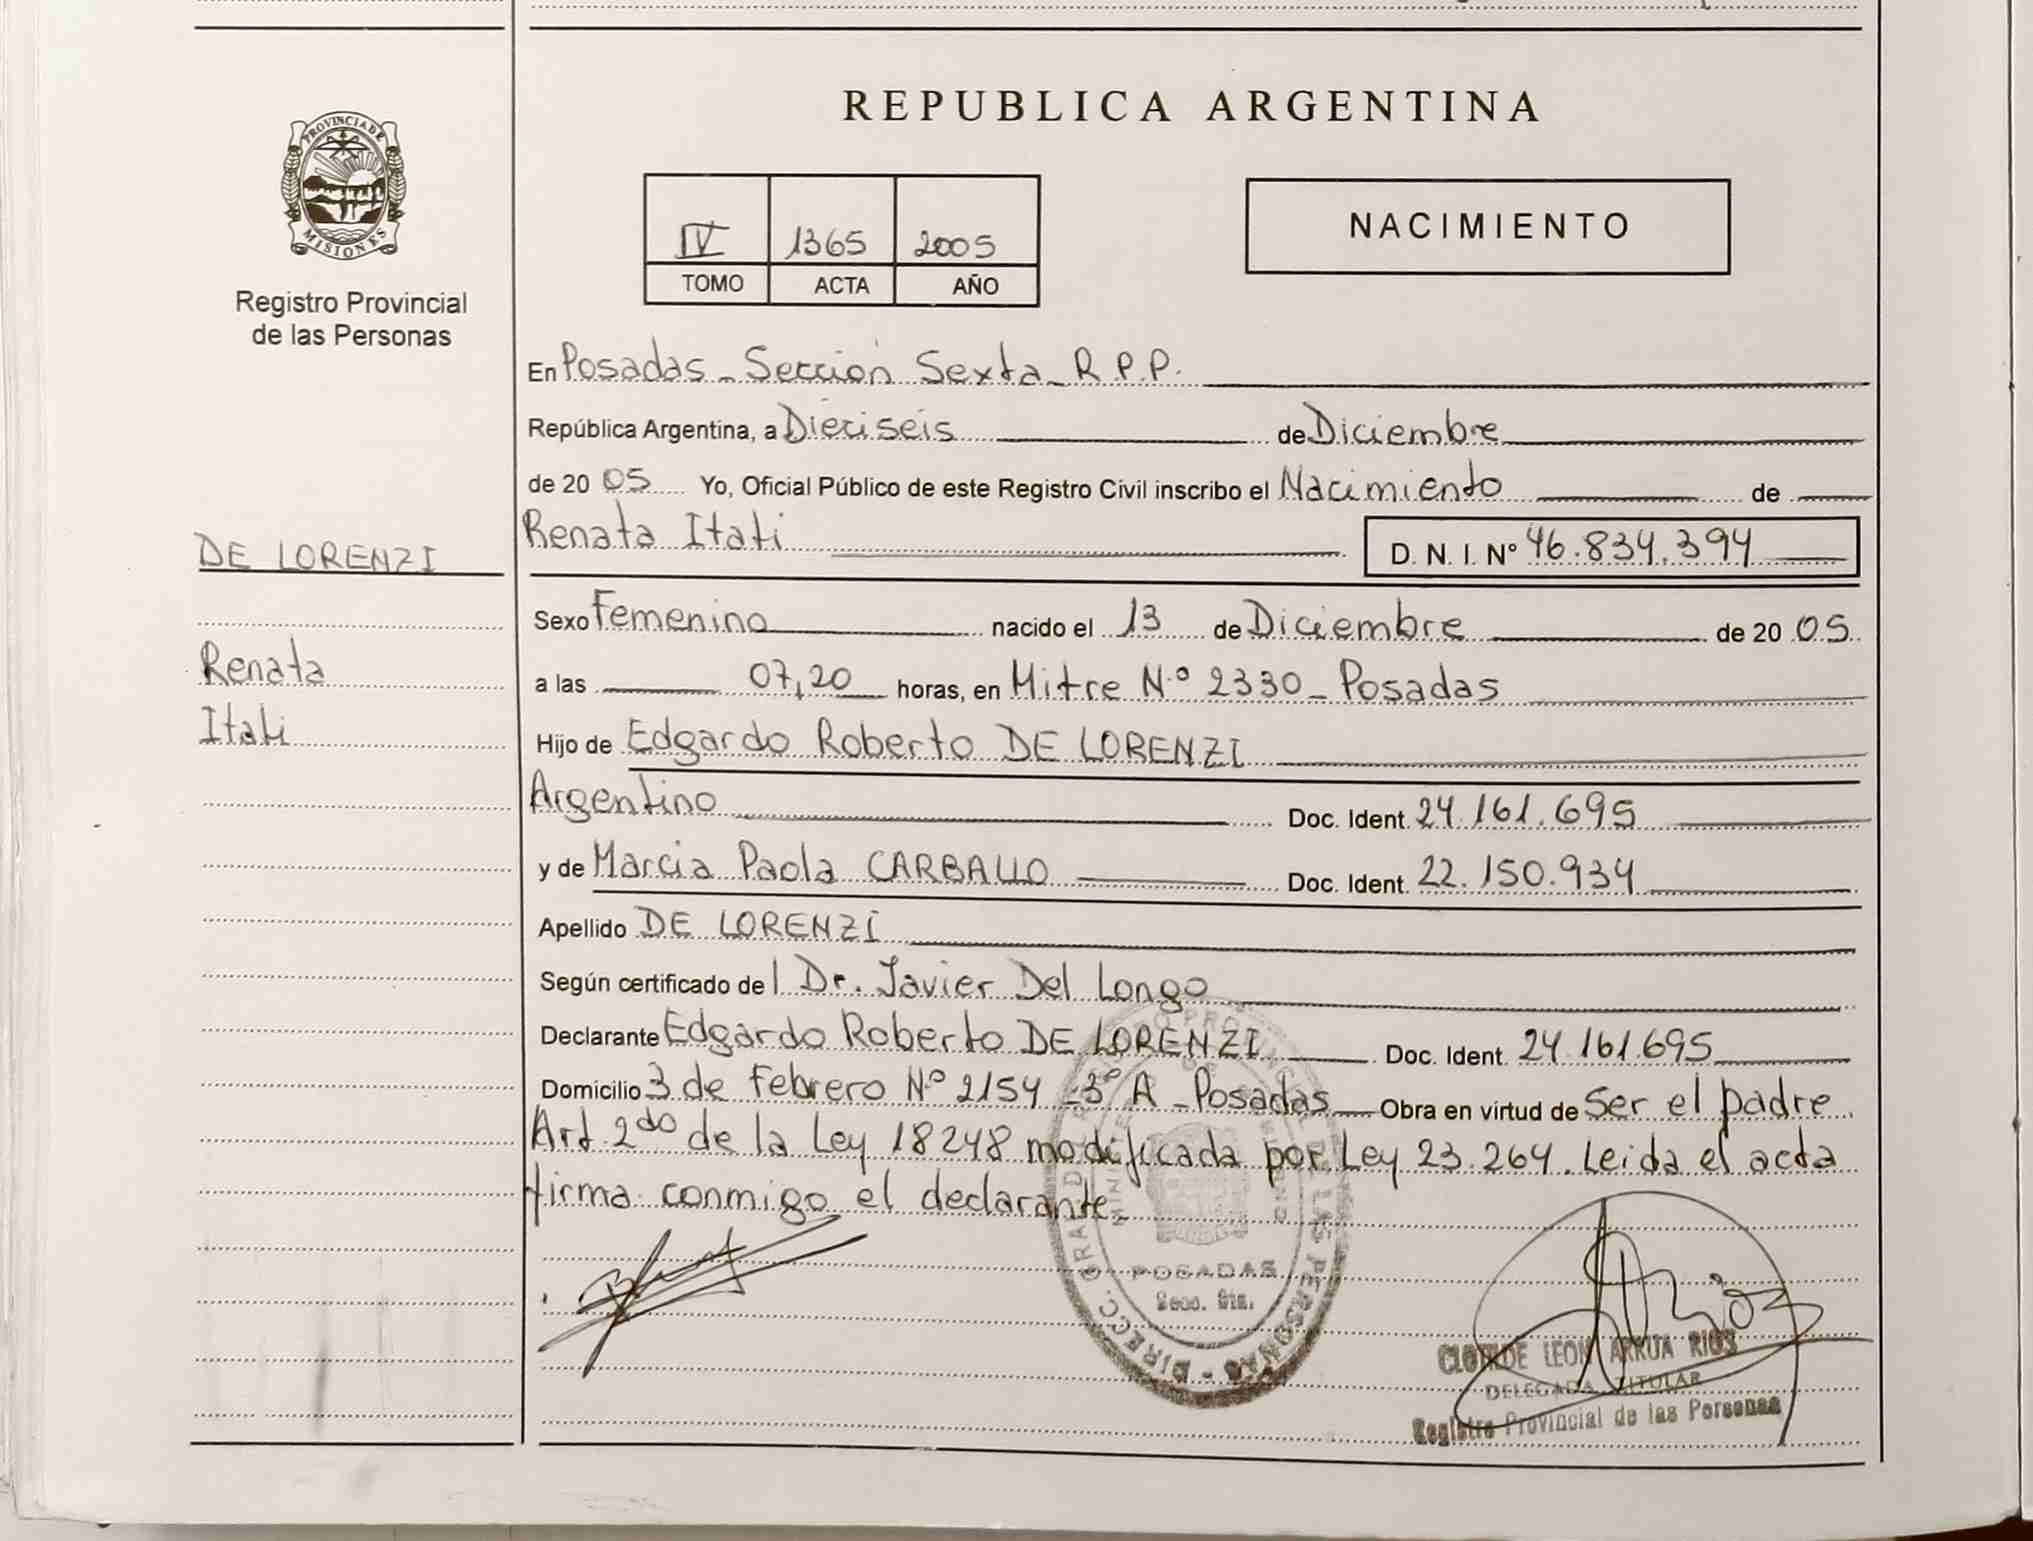 REPUBLICA ARGENTINA
PROVINCIA DE
MISIONES
Registro Provincial
de las Personas
IV 1365 2005
TOMO ACTA AÑO
NACIMIENTO
En Posadas - Sección Sexta - R.P.P.
República Argentina, a Dieciseis de Diciembre
de 2005 Yo, Oficial Público de este Registro Civil inscribo el Nacimiento de
Renata Itati D. N. I. Nº 46.834.394
DE LORENZI
Renata
Itati
Sexo Femenino nacido el 13 de Diciembre de 2005
a las 07,20 horas, en Mitre N.º 2330 - Posadas
Hijo de Edgardo Roberto DE LORENZI
Argentino Doc. Ident. 24.161.695
y de Marcia Paola CARBALLO Doc. Ident. 22.150.934
Apellido DE LORENZI
Según certificado del Dr. Javier Del Longo
Declarante Edgardo Roberto DE LORENZI Doc. Ident. 24.161.695
Domicilio 3 de Febrero N.º 2154 - 3º A - Posadas Obra en virtud de Ser el padre
Art. 2do de la Ley 18248 modificada por Ley 23.264. Leida el acta
firma conmigo el declarante.
POSADAS
Secc. 6ta.
CLOTILDE LEON ARRUA RIOS
DELEGADA TITULAR
Registro Provincial de las Personas